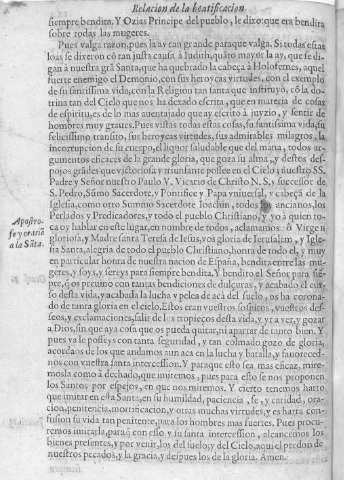 Relacion de la beatificacion
siempre bendita. Y Ozias Principe del pueblo, le dixo: que era bendita
sobre todas las mugeres.
Pues valga razon, pues la ay tan grande para que valga. Si todas estas
loas se dieron cõ tan justa causa à Iudith, quãto mayor la ay, que se di-
gan à nuestra grã Santa, que ha quebrado la cabeça à Holofernes, aquel
fuerte enemigo el Demonio, con sus heroycas virtudes, con el exemplo
de su santissima vida, con la Religion tan santa que instituyò, cõ la do-
trina tan del Cielo que nos ha dexado escrita, que en materia de cosas
de espiritu, es de lo mas auentajado que ay escrito à juyzio, y sentir de
hombres muy graues. Pues vistas todas estas cosas, su santissima vida, su
felicissimo transito, sus heroycas virtudes, sus admirables milagros, la
incorrupcion de su cuerpo, el liquor saludable que del mana, todos ar-
gumentos eficaces de la grande gloria, que goza su alma, y destos des-
pojos grãdes que victoriosa y triunfante possee en el Cielo; nuestro SS.
Padre y Señor nuestro Paulo V. Vicario de Christo N. S, y sucessor de
S. Pedro, Sũmo Sacerdote, y Pontifice y Papa vniuersal, y cabeça de la
Iglesia, como otro Summo Sacerdote Ioachin, todos ancianos, los
Perlados y Predicadores, y todo el pueblo Christiano, y yo à quien to-
ca oy hablar en este lugar, en nombre de todos, aclamamos: ô Virgen
Apostro-
fe y oraciõ
a la Sãta.
gloriosa, y Madre santa Teresa de Iesus, vos gloria de Ierusalem, y Igle-
sia Santa, alegria de todo el pueblo Christiano, honra de todo el, y muy
en particular honra de nuestra nacion de España, bendita entre las mu-
geres, y soys, y sereys para siempre bendita. Y bendito el Señor para siẽ-
pre, q̃ os preuino con tantas bendiciones de dulçuras, y acabado el cur-
so desta vida, y acabada la lucha y pelea de acà del suelo, os ha corona-
do de tanta gloria en el cielo. Estos eran vuestros sospiros, vuestros des-
seos, y exclamaciones, salir de los tropieços desta vida, y yr a ver, y gozar
a Dios, sin que aya cosa que os pueda quitar, ni apartar de tanto bien. Y
pues ya le posseys con tanta seguridad, y tan colmado gozo de gloria,
acordaos de los que andamos aun aca en la lucha y batalla, y fauoreced-
nos con vuestra santa intercession. Y para que esto sea mas eficaz, mire-
mosla como à dechado, que imitemos, pues para esto se nos proponen
los Santos por espejos, en que nos miremos. Y cierto tenemos harto
que imitar en esta Santa, en su humildad, paciencia, fe, y caridad, ora-
cion, penitencia, mortificacion, y otras muchas virtudes, y es harta con-
fusion su vida tan penitente, para los hombres mas fuertes. Pues procu-
remos imitarla, para q̃ con esso y su santa intercession, alcancemos los
bienes presentes, y por venir, los del suelo, y del Cielo, aqui el perdon de
nuestros pecados, y la gracia, y despues los de la gloria. Amen.